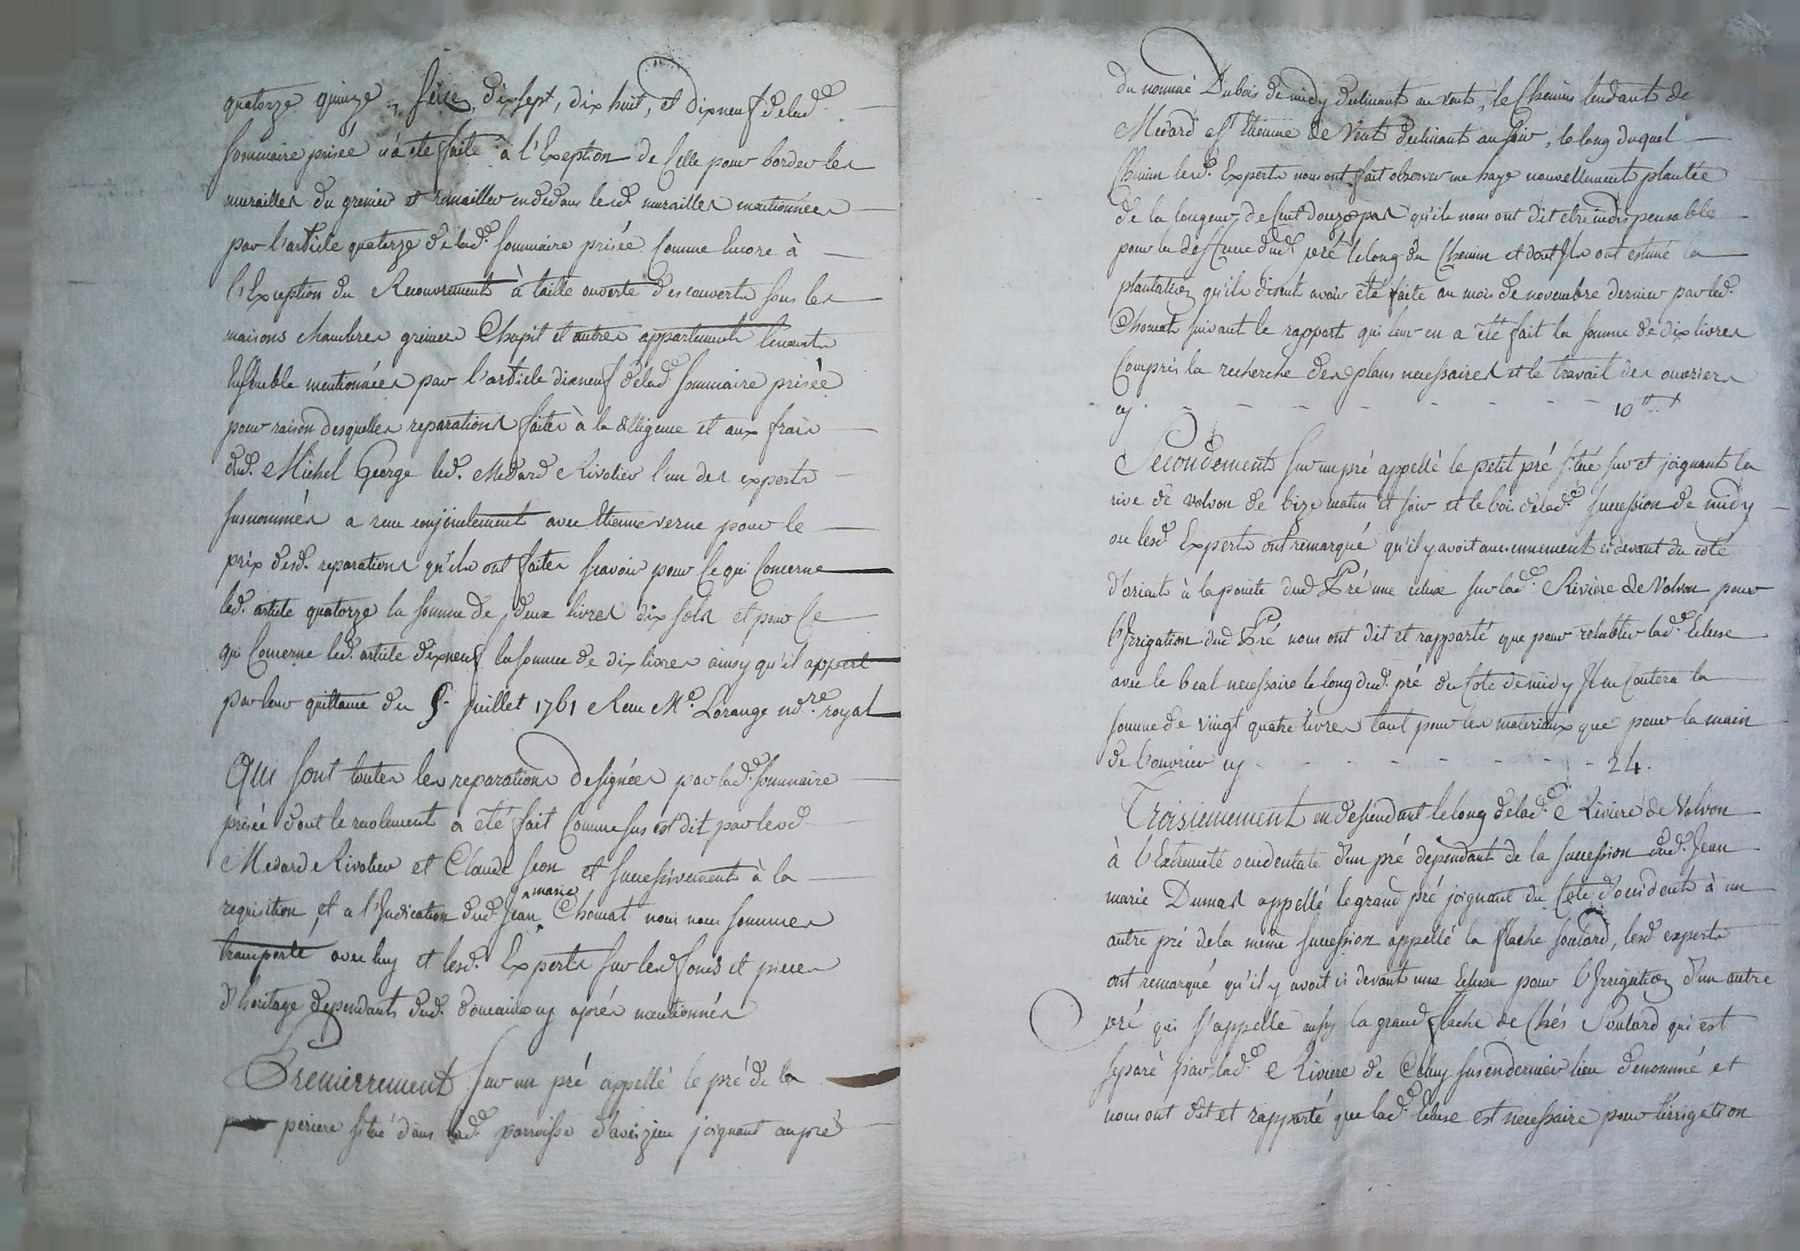 quatorze quinze, seize, dix sept, dix huit, et dix neuf de lad.e
sommaire prisée n'a été faite à l'Exeption de Celle pour border les
murailles du grenier et remailler en dedans lesd. murailles mentionnées
par l'article quatorze de lad.e sommaire prisée Comme Encore à
l'Exeption du Recouvrement à taille ouverte des couverts sous les
maisons chambres grenier Chapit et autres appartements tenants
Ensemble mentionnées par l'article dixneuf de lad.e sommaire prisée
pour raison desquelles reparations faites à la diligence et aux frais
dud. Michel George led. Medard Rivolier l'un des experts
susnommés a reçu conjointement avec Etienne verne pour le
prix desd. reparations qu'ils ont faites scavoir pour Ce qui Concerne
led. article quatorze la somme de deux livres dix sols et pour Ce
qui Concerne led. article dixneuf la somme de dix livres ainsy qu'il appert
par leur quittance du 5. Juillet 1761 Reçue M.e Lorange no.re royal
Qui sont toutes les reparations designées par lad.e sommaire
prisée dont le recolement a été fait Comme sus est dit par lesd
Medard Rivolier et Claude Jeon et successivement à la
requisition, et a l'Indication dud. Jean marie Chomat nous nous sommes
transporté avec luy et lesd. Experts sur lesd fonds et pieces
d'heritage dependants dud. domaine cy aprés mentionnés
Premierrement sur un pré appellé le pré de la
periere situé dans lad.e parroisse d'aveizieu joignant au pré
du nommé Dubois de midy declinant au vent, le Chemin tendant de
Medard a S.t Etienne de Vent declinant au soir, le long duquel
Chemin lesd. Experts nous ont fait observer une haye nouvellement plantée
de la longeur de Cent douze pas qu'ils nous ont dit etre indispensable
pour la deffence dud. pré le long du Chemin et dont Ils ont estimé la
plantation qu'ils disent avoir été faite au mois de novembre dernier par led.
Chomat suivant le rapport qui leur en a été fait la somme de dix livres
Compris la recherche des plans necessaires et le travail des ouvriers
cy - - - - - - - - 10 ₶
Secondement sur un pré appellé le petit pré situé sur et joignant la
rive de volvon de bize matin et soir et le bois de lad.e succession de midy
ou lesd. Experts ont remarqué qu'il y avoit anciennement ci devant du coté
d'orient à la pointe dud Pré une ecluse sur lad.e Riviere de Volvon pour
l'Irrigation dud Pré nous ont dit et rapporté que pour retablir lad.e Ecluse
avec le beal necessaire le long dud. pré du Coté de midy Il en Coutera la
somme de vingt quatre livres tant pour les materiaux que pour la main
de l'ouvrier cy - - - - - - - - 24.
Troisiemement en descendant le long de lad.e Riviere de Volvon
à l'Extremité occidentale d'un pré dependant de la succession dud. Jean
marie Dumas appellé le grand pré joignant du Coté d'occident à un
autre pré de la meme succession appellé la flache soulard, lesd experts
ont remarqué qu'il y avoit ci devant une Ecluse pour l'Irrigation d'un autre
pré qui s'appelle aussy la grand flache de Chés Soulard qui est
separé par lad.e Riviere de Celuy sus en dernier lieu denommé et
nous ont dit et rapporté que lad.e Ecluse est necessaire pour l'irrigation